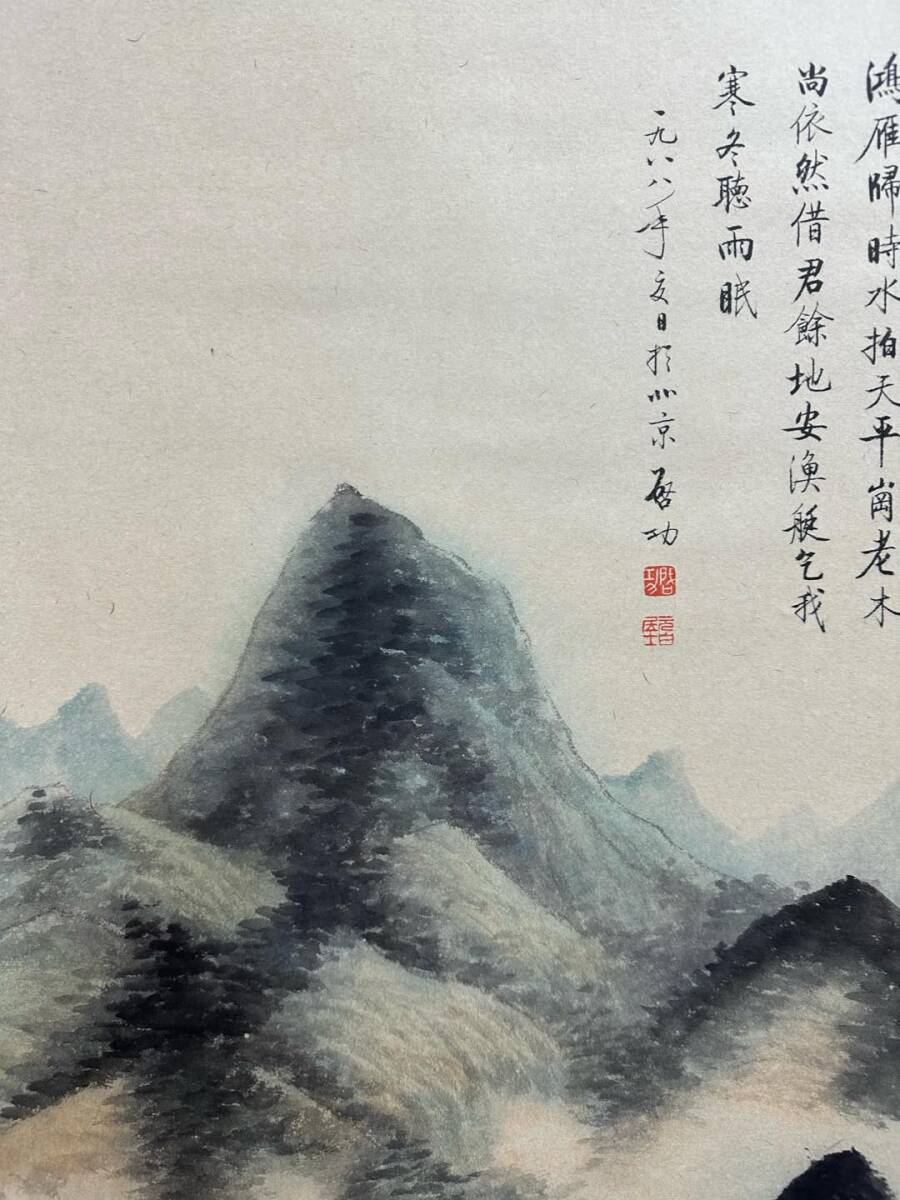 鴻雁歸時水拍天平崗老木
尚依然借君餘地安漁艇乞我
寒冬聴雨眠
一九八八年夏日於北京 啓功
啓功
元白